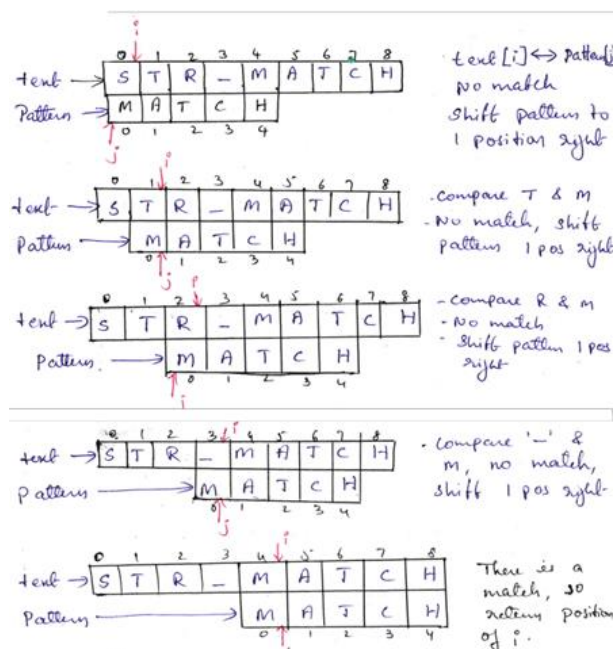 i
0 1 2 4 5 6 7 8
text → S T R _ M A T C H
text[i] ↔ Pattern[j]
Pattern → M A T C H
No match
shift pattern to
1 position right
0 1 2 3 4
j
i
0 1 2 3 4 5 6 7 8
text → S T R _ M A T C H
Pattern → M A T C H
0 1 2 3 4
j
- compare T & M
- No match, shift
pattern 1 pos right
0 1 2 3 4 5 6 7 8
text → S T R _ M A T C H
Pattern → M A T C H
0 1 2 3 4
- compare R & M
- No match
- shift pattern 1 pos
right
i
0 1 2 3 4 5 6 7 8
text → S T R _ M A T C H
Pattern → M A T C H
0 1 2 3 4
j
- compare '_' &
M, no match,
shift 1 pos right
i
0 1 2 3 4 5 6 7 8
text → S T R _ M A T C H
Pattern → M A T C H
0 1 2 3 4
There is a
match, so
return position
of i.